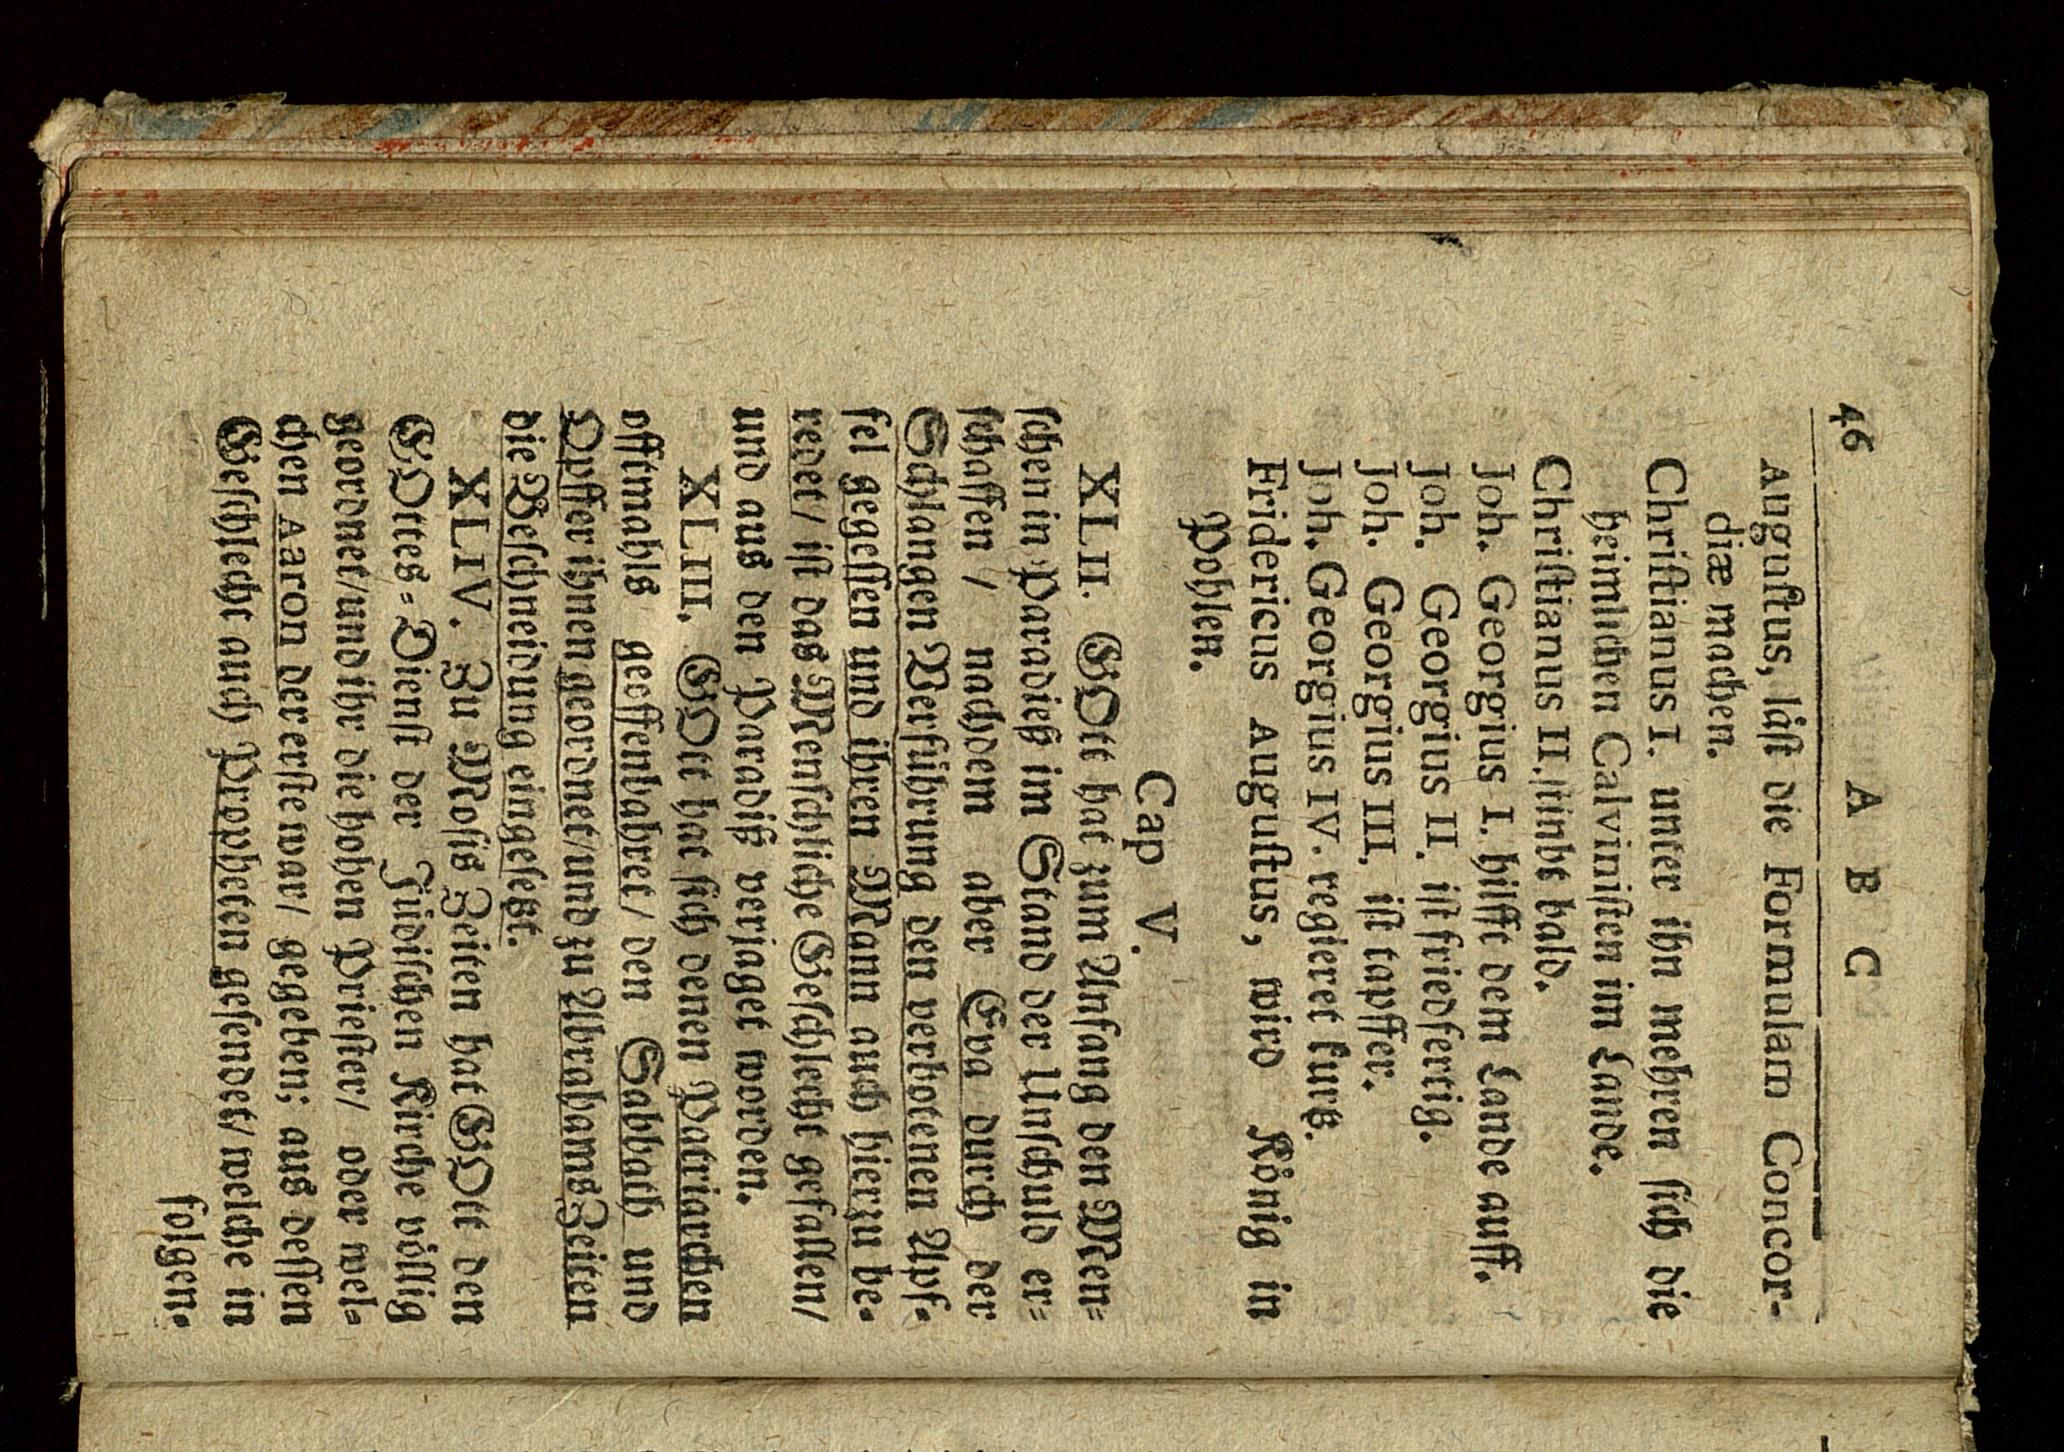 46 A B C
Augustus, läst die Formulam Concor-
diæ machen.
Christianus I. unter ihn mehren sich die
heimlichen Calvinisten im Lande.
Christianus II. stirbt bald.
Joh. Georgius I. hilfft dem Lande auff.
Joh. Georgius II. ist friedfertig.
Joh. Georgius III. ist tapffer.
Joh. Georgius IV. regieret kurtz.
Fridericus Augustus, wird König in
Pohlen.
Cap V.
XLII. GOtt hat zum Anfang den Men-
schen in Paradieß im Stand der Unschuld er-
schaffen / nachdem aber Eva durch der
Schlangen Verführung den verbotenen Apf-
fel gegessen und ihren Mann auch hierzu be-
redet/ ist das Menschliche Geschlecht gefallen/
und aus den Paradiß verjaget worden.
XLIII. GOtt hat sich denen Patriarchen
offtmahls geoffenbahret/ den Sabbath und
Opffer ihnen geordnet/und zu Abrahams Zeiten
die Beschneidung eingesetzt.
XLIV. Zu Mosis Zeiten hat GOtt den
GOttes-Dienst der Jüdischen Kirche völlig
geordnet/und ihr die hohen Priester/ oder wel-
chen Aaron der erste war/ gegeben; aus dessen
Geschlecht auch Propheten gesendet/ welche in
folgen-